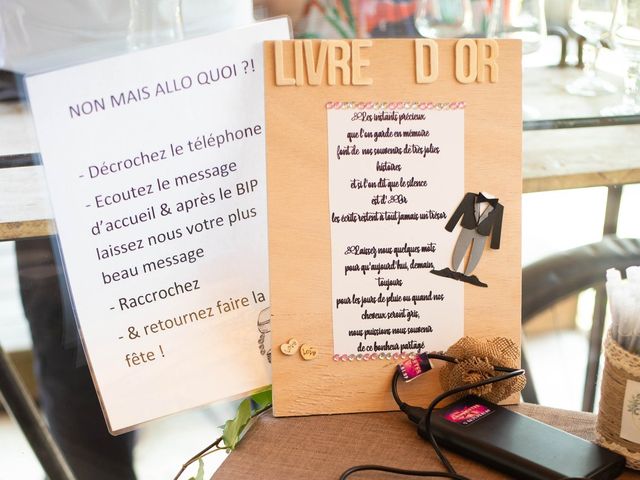 NON MAIS ALLO QUOI ?!
- Décrochez le téléphone
- Ecoutez le message
d'accueil & après le BIP
laissez nous votre plus
beau message
- Raccrochez
- & retournez faire la
fête !
LIVRE D'OR
Les instants précieux
que l'on garde en mémoire
font de nos souvenirs de très jolies
histoires
et si l'on dit que le silence
est d'Or
les écrits restent à tout jamais un trésor
Laissez nous quelques mots
pour qu'aujourd'hui, demain,
toujours
pour les jours de pluie ou quand nos
cheveux seront gris,
nous puissions nous souvenir
de ce bonheur partagé